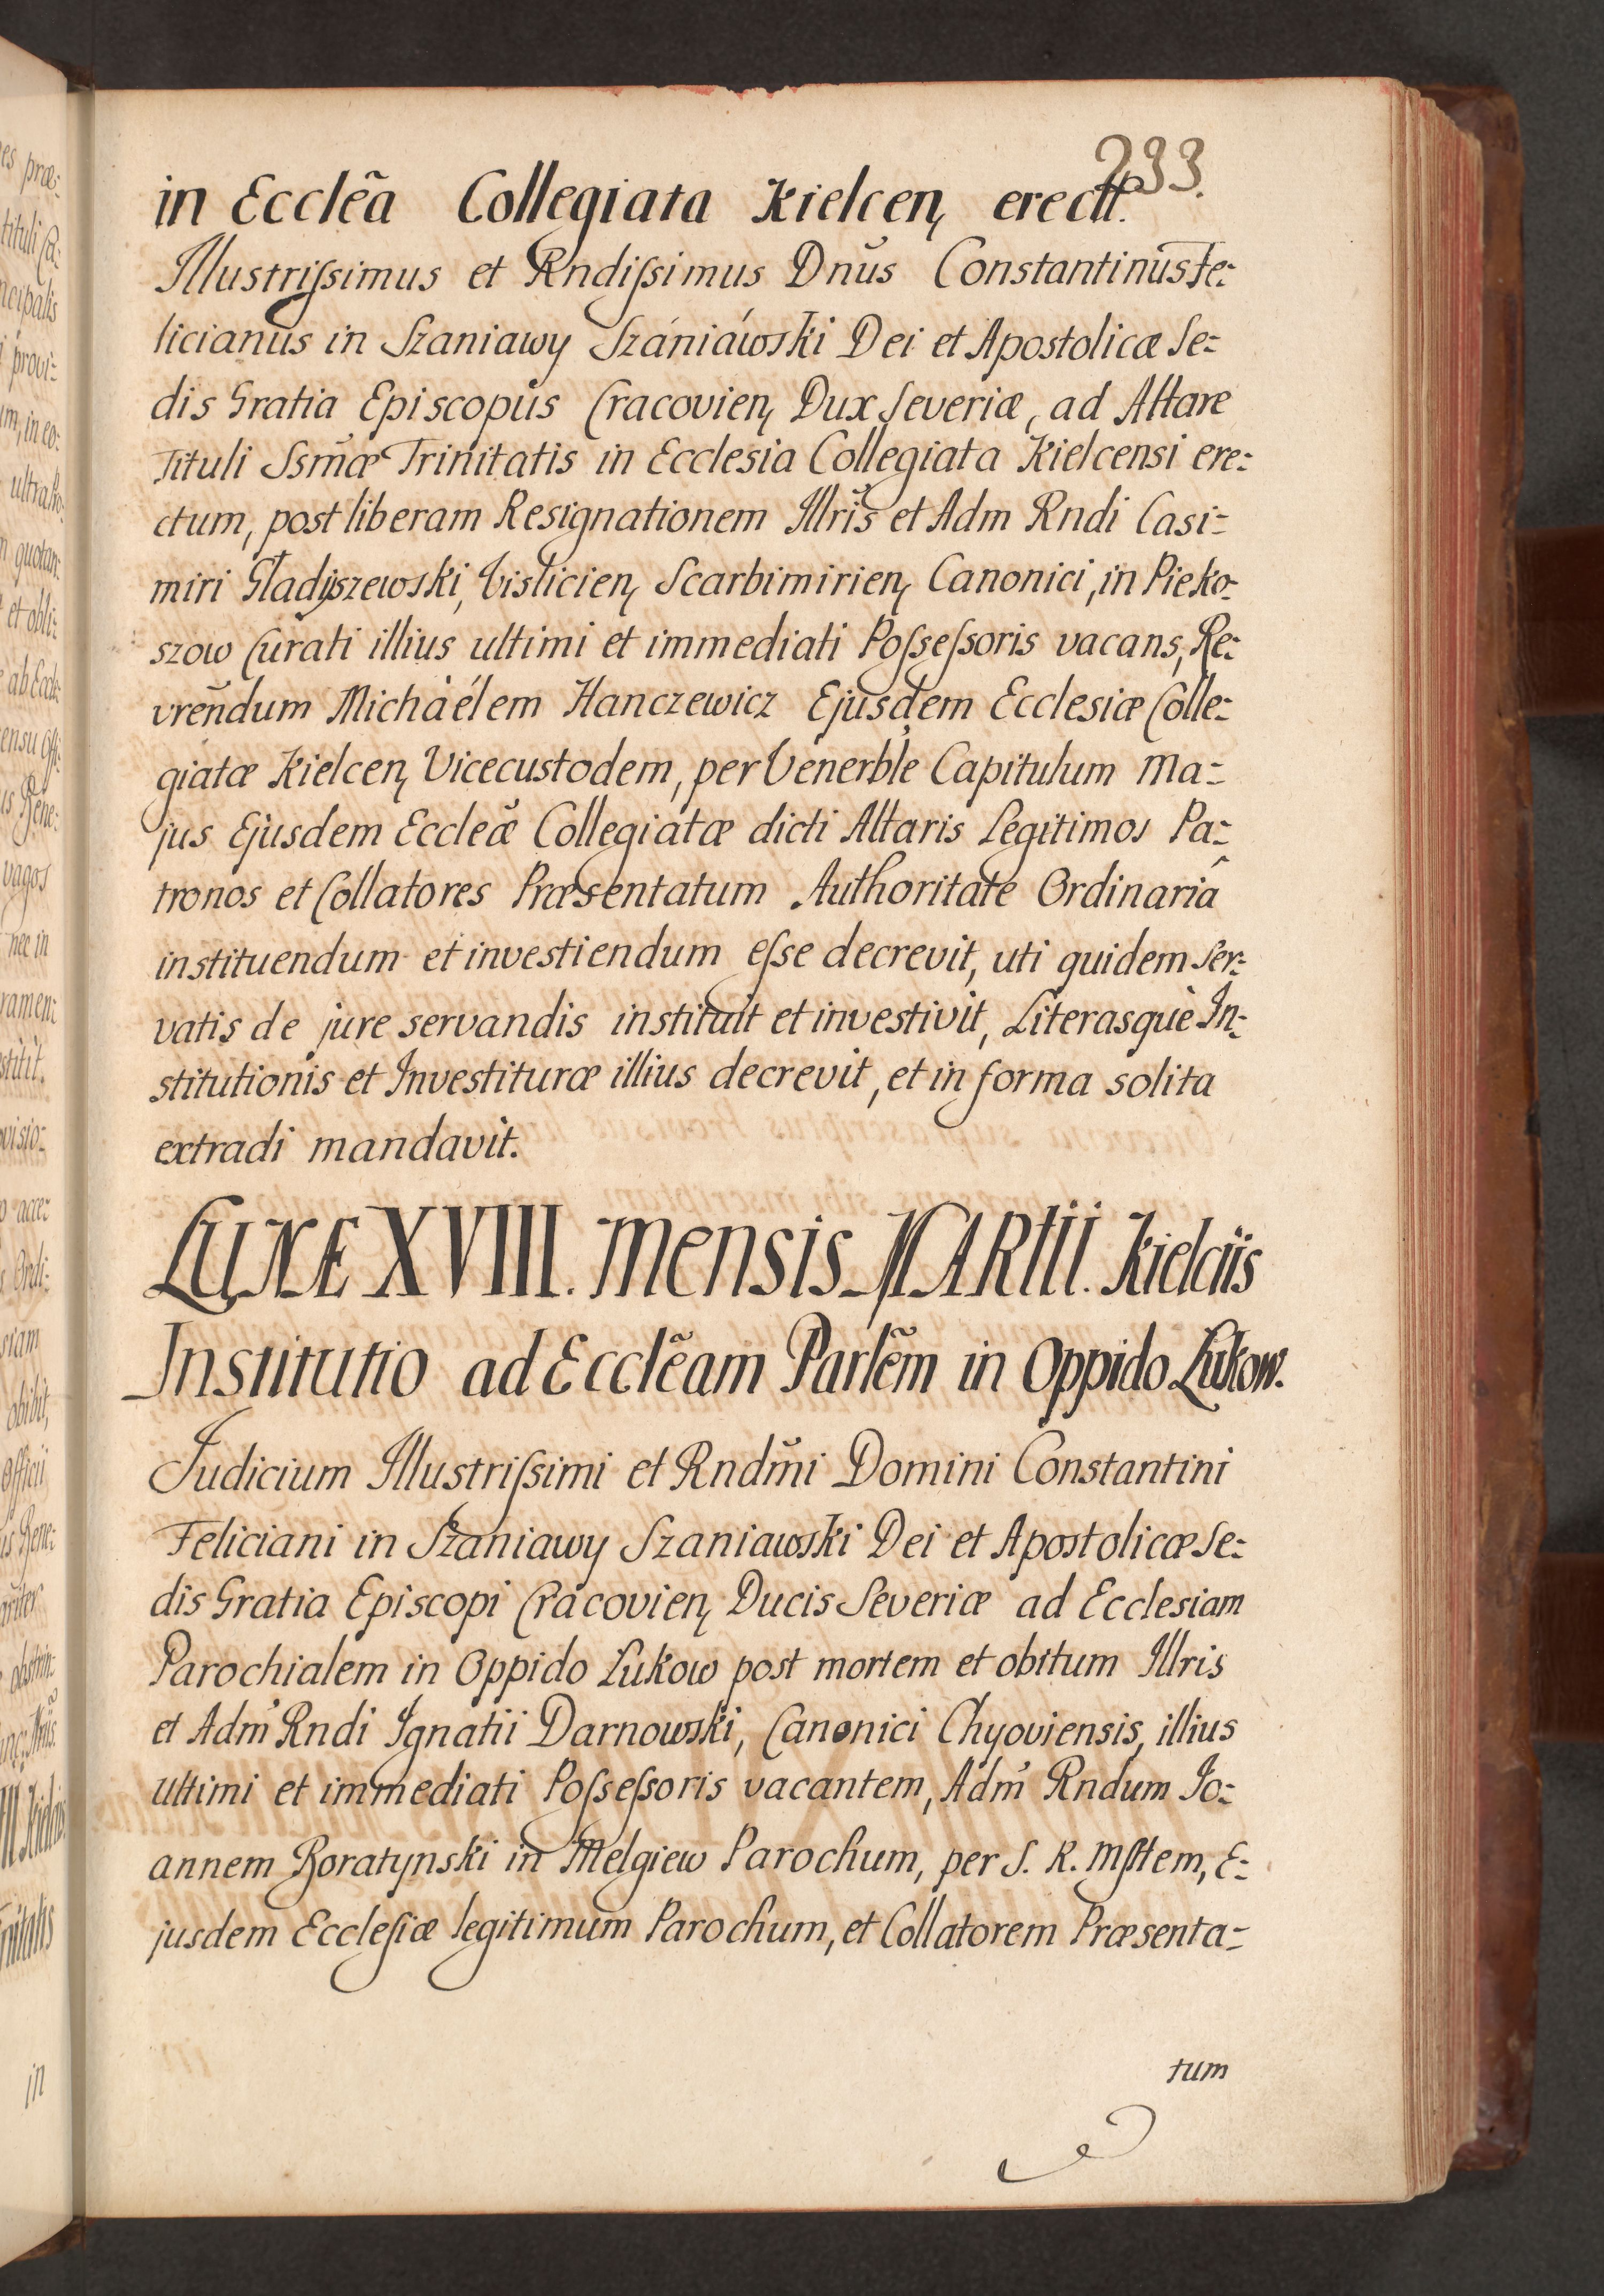 233.
in Ecclẽa Collegiata Kielcen, erectt.
Illustrissimus et Rndissimus Dnus Constantinus Fe:
licianus in Szaniawy Szaniawski Dei et Apostolicæ Se:
dis Gratia Episcopus Cracovien, Dux Severiæ, ad Altare
Tituli Ssmæ Trinitatis in Ecclesia Collegiata Kielcensi ere:
ctum, post liberam Resignationem Illris et Adm Rndi Casi:
miri Gładyszewski, Vislicien, Scarbimirien, Canonici, in Pieko-
szow Curati illius ultimi et immediati Possessoris vacans, Re:
vrendum Michàélem Hanczewicz Ejusdem Ecclesiæ Colle:
giatæ Kielcen, Vicecustodem, per Venerble Capitulum Ma:
jus Ejusdem Eccleæ Collegiatæ dicti Altaris Legitimos Pa:
tronos et Collatores Præsentatum Authoritate Ordinariâ
instituendum et investiendum esse decrevit, uti quidem ser:
vatis de jure servandis instituit et investivit, Literasquè In:
stitutionis et Investituræ illius decrevit, et in forma solita
extradi mandavit.
LUNÆ XVIII. Mensis MARTII. Kielciis
Institutio ad Ecclẽam Parlẽm in Oppido Łukow.
Judicium Illustrissimi et Rndmi Domini Constantini
Feliciani in Szaniawy Szaniawski Dei et Apostolicæ Se:
dis Gratia Episcopi Cracovien, Ducis Severiæ ad Ecclesiam
Parochialem in Oppido Łukow post mortem et obitum Illris
et Adm Rndi Ignatii Darnowski, Canonici Chyoviensis, illius
ultimi et immediati Possessoris vacantem, Adm Rndum Jo:
annem Boratynski in Melgiew Parochum, per S. R. Mttem, E:
jusdem Ecclesiæ legitimum Parochum, et Collatorem Præsenta:
tum